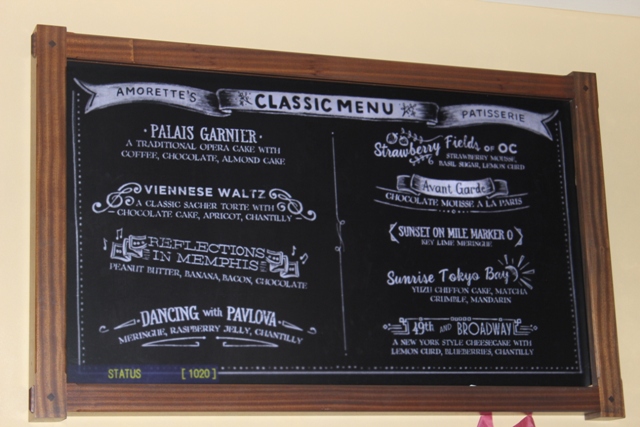 AMORETTE'S CLASSIC MENU PATISSERIE
PALAIS GARNIER
A TRADITIONAL OPERA CAKE WITH
COFFEE, CHOCOLATE, ALMOND CAKE
VIENNESE WALTZ
A CLASSIC SACHER TORTE WITH
CHOCOLATE CAKE, APRICOT, CHANTILLY
REFLECTIONS
IN MEMPHIS
PEANUT BUTTER, BANANA, BACON, CHOCOLATE
DANCING with PAVLOVA
MERINGUE, RASPBERRY JELLY, CHANTILLY
Strawberry Fields OF OC
STRAWBERRY MOUSSE,
BASIL SUGAR, LEMON CURD
Avant Garde
CHOCOLATE MOUSSE A LA PARIS
SUNSET ON MILE MARKER 0
KEY LIME MERINGUE
Sunrise Tokyo Bay
YUZU CHIFFON CAKE, MATCHA
CRUMBLE, MANDARIN
19th AND BROADWAY
A NEW YORK STYLE CHEESECAKE WITH
LEMON CURD, BLUEBERRIES, CHANTILLY
STATUS [1020]